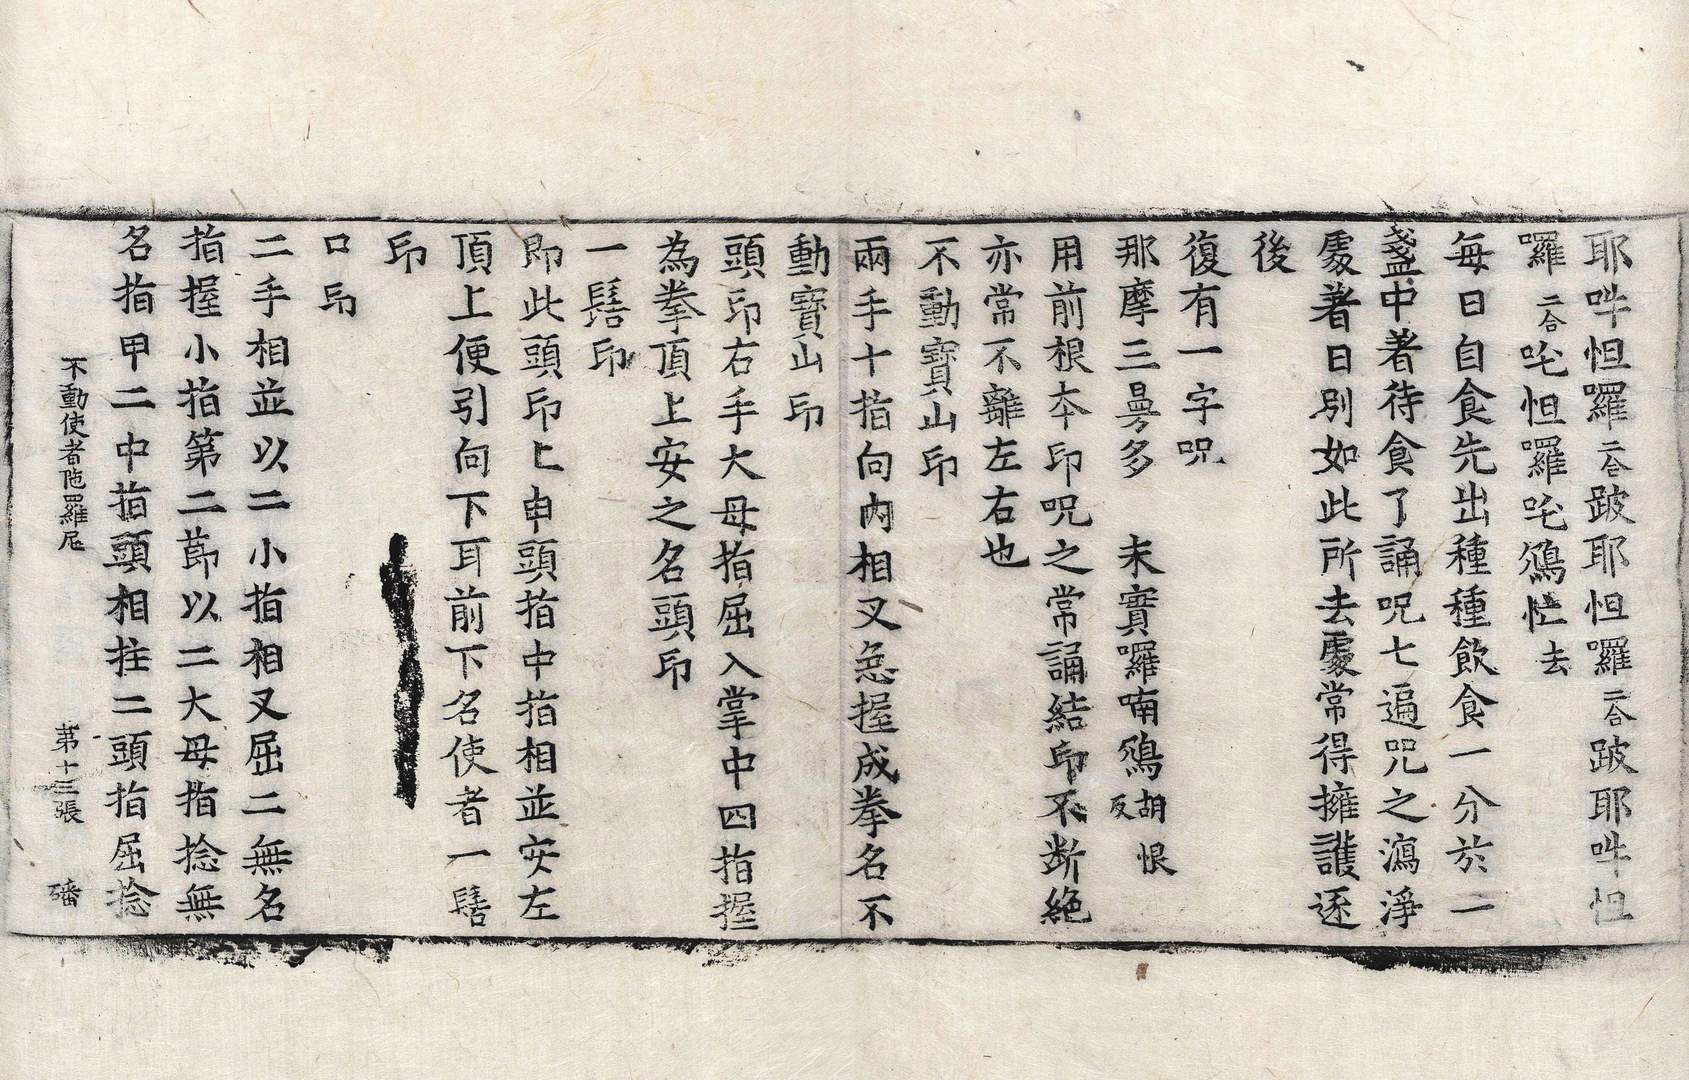 耶吽怛囉二合跛耶怛囉二合跛耶吽怛
囉二合吒怛囉吒鴆恾去
每日自食先出種種飲食一分於一
盞中著待食了誦呪七遍呪之瀉淨
處著日別如此所去處常得擁護逐
後
復有一字呪
那摩三曼多 末寶囉喃鴆胡恨反
用前根本印呪之常誦結印不断絶
亦常不離左右也
不動寶山印
兩手十指向内相叉急握成拳名不
動寶山印
頭印右手大母指屈入掌中四指握
為拳頂上安之名頭印
一髻印
即此頭印上申頭指中指相並安左
頂上便引向下耳前下名使者一髻
印
口印
二手相並以二小指相叉屈二無名
指握小指第二節以二大母指捻無
名指甲二中指頭相拄二頭指屈捻
不動使者陁羅尼 第十三張 磻